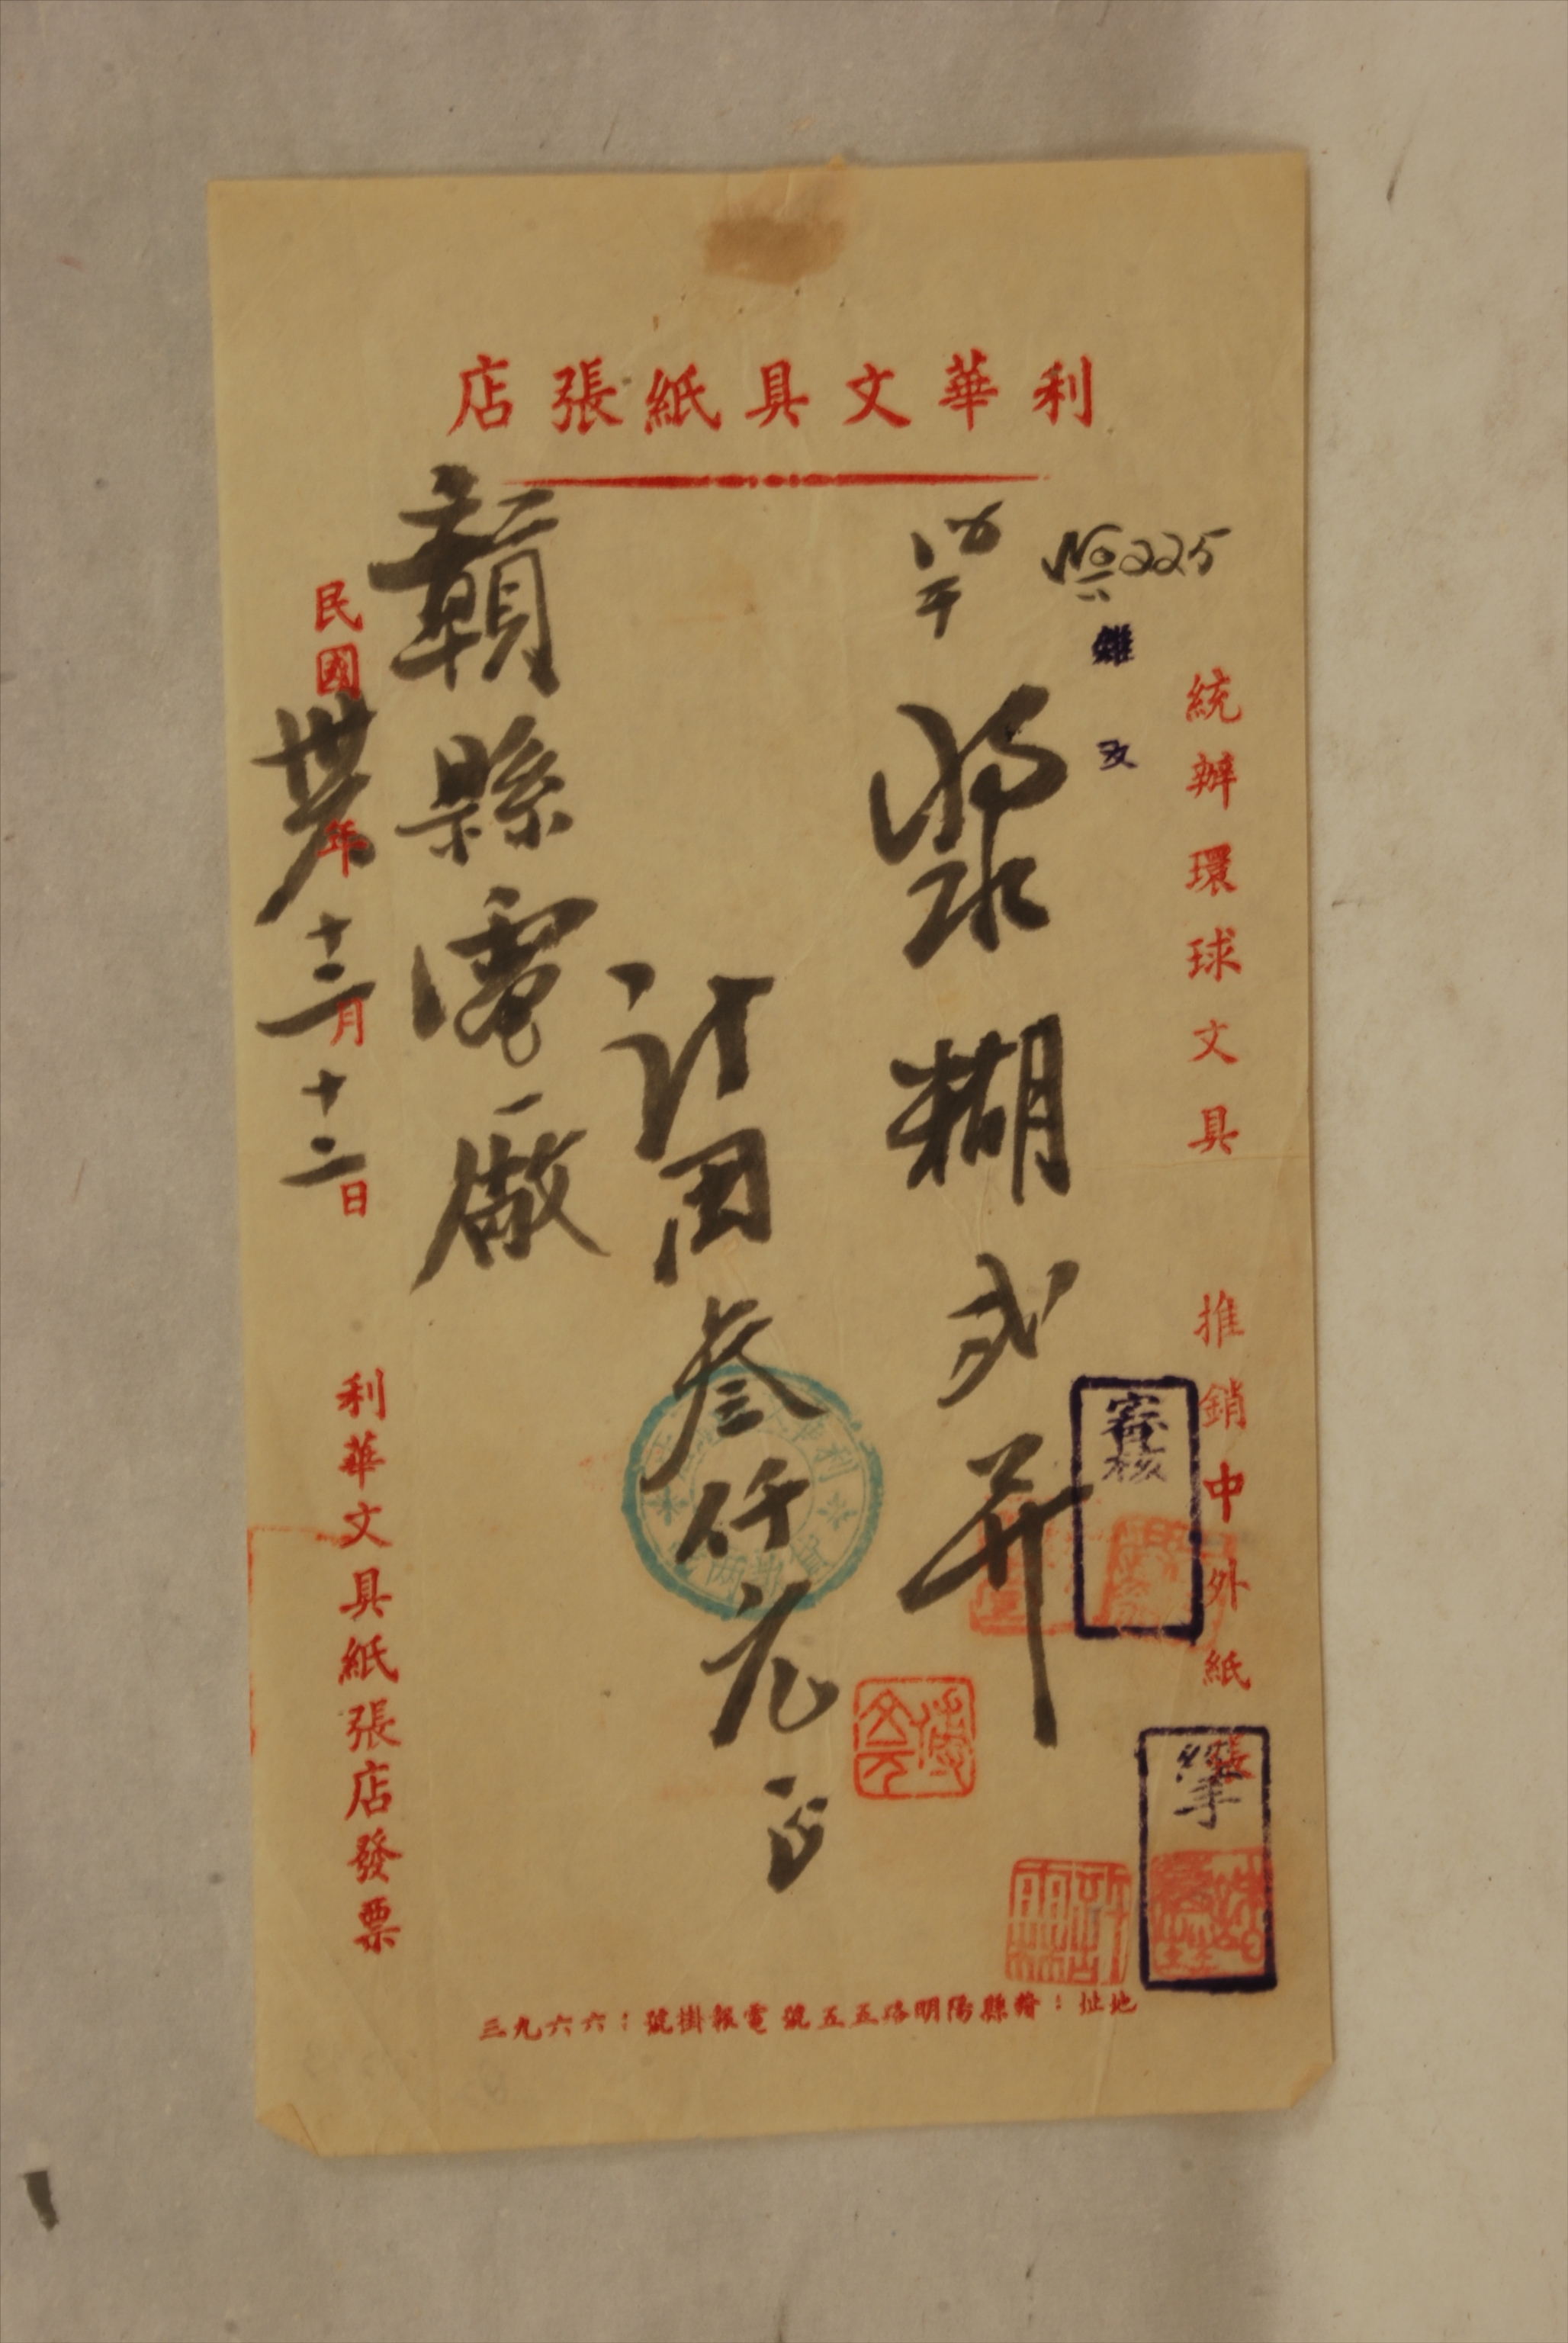 利華文具紙張店
統辦環球文具 推銷中外紙張
No 225
雜文
漿糊弍瓶
計国叁仟元正
贛縣電廠
民國卅四年十二月十二日
利華文具紙張店發票
審核
經手
地址：贛縣陽明路五五號 電報掛號：六六九三